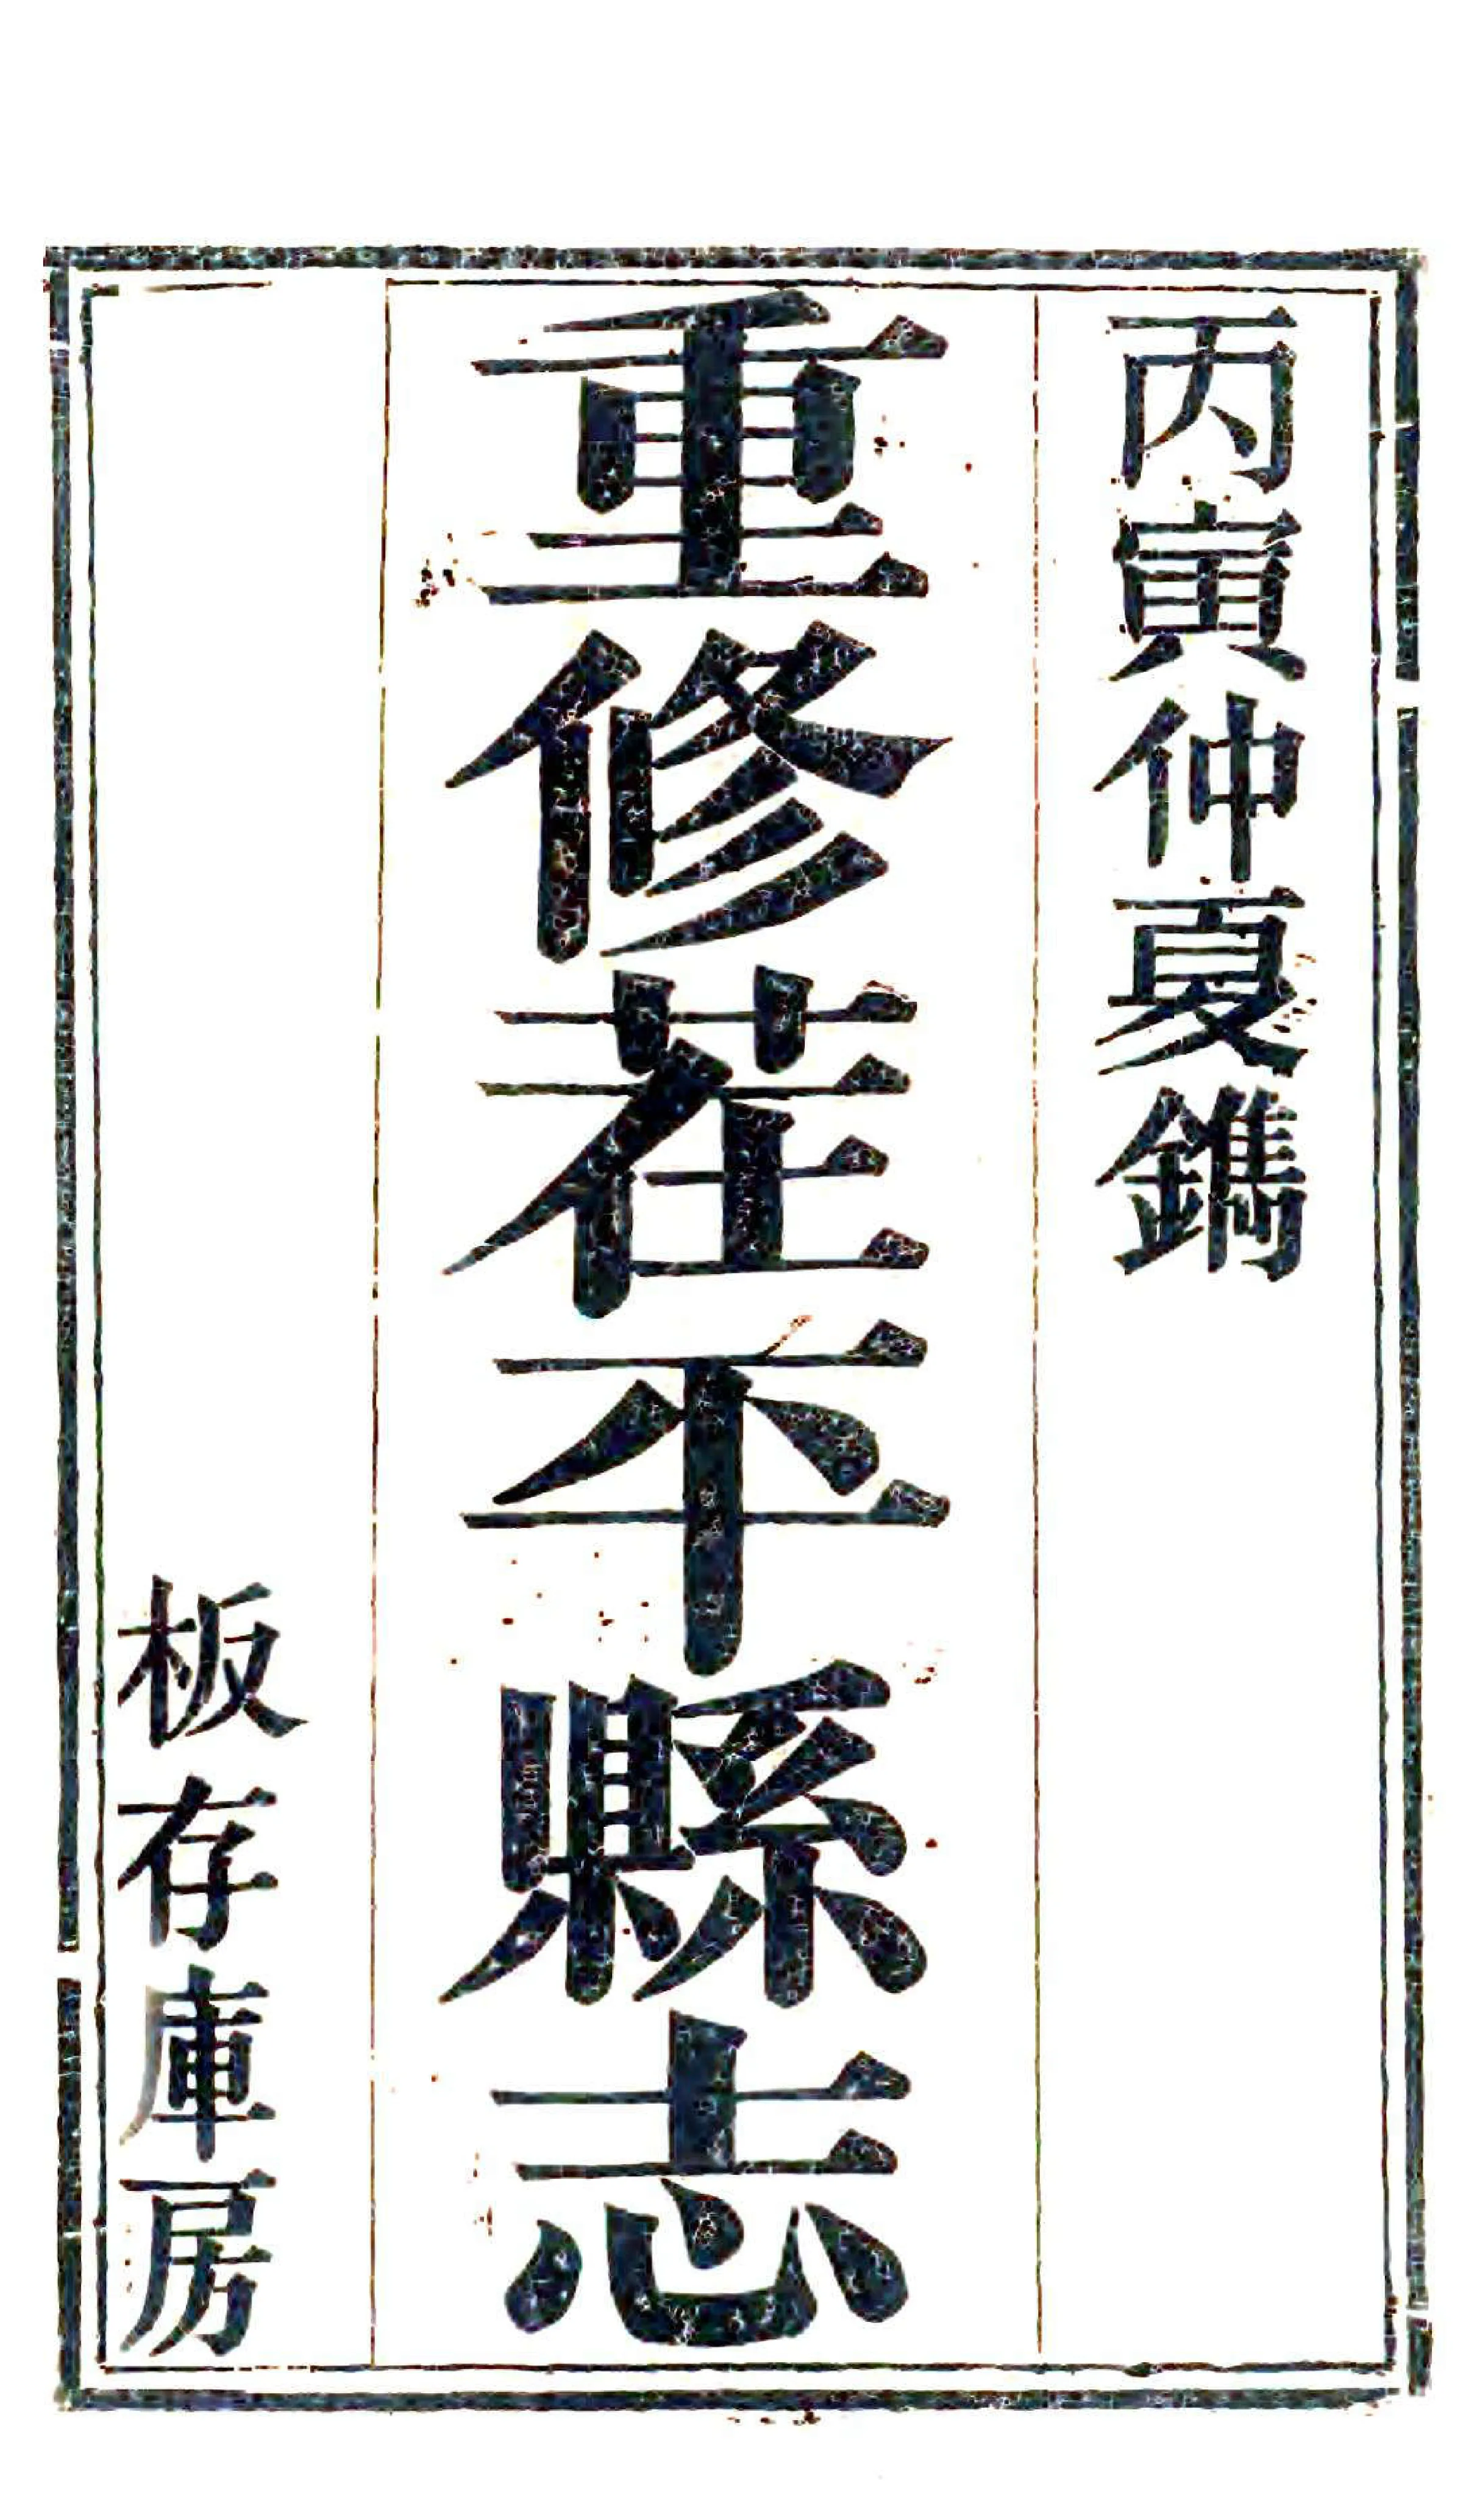 丙寅仲夏鐫
重修茬平縣志
板存庫房